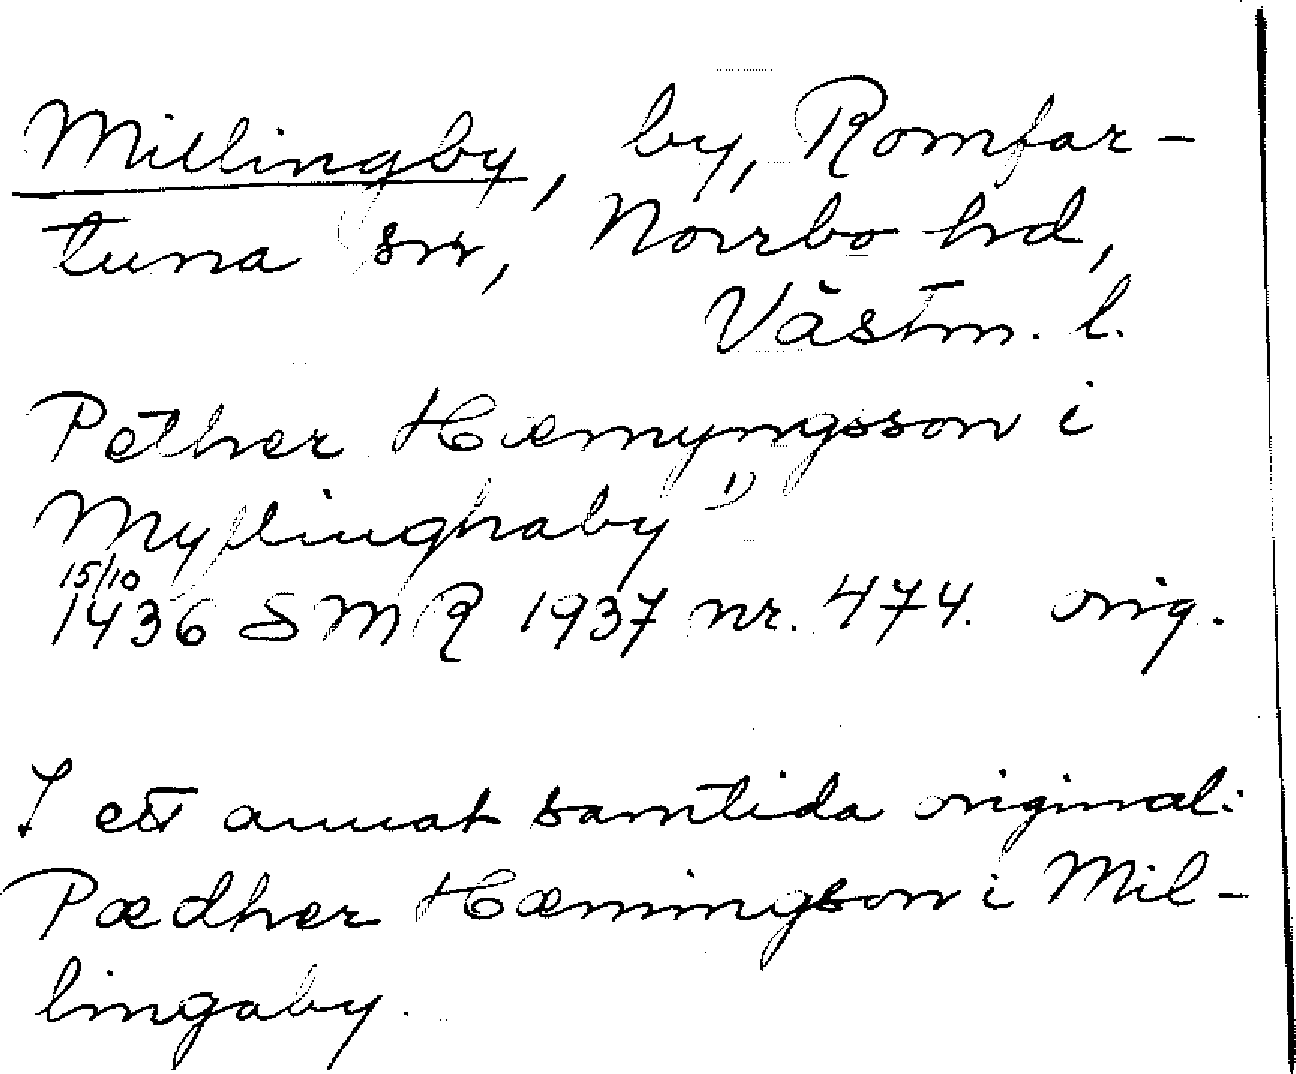 Millingby, by, Romfar-
tuna sn, Norrbo hd,
Västm. l.
Pether Hæmyngsson i
Myllinghaby 1)
15/10
1436 SMR 1937 nr. 474. orig.
I ett annat samtida original:
Pædher Hæmingson i Mil-
lingaby.